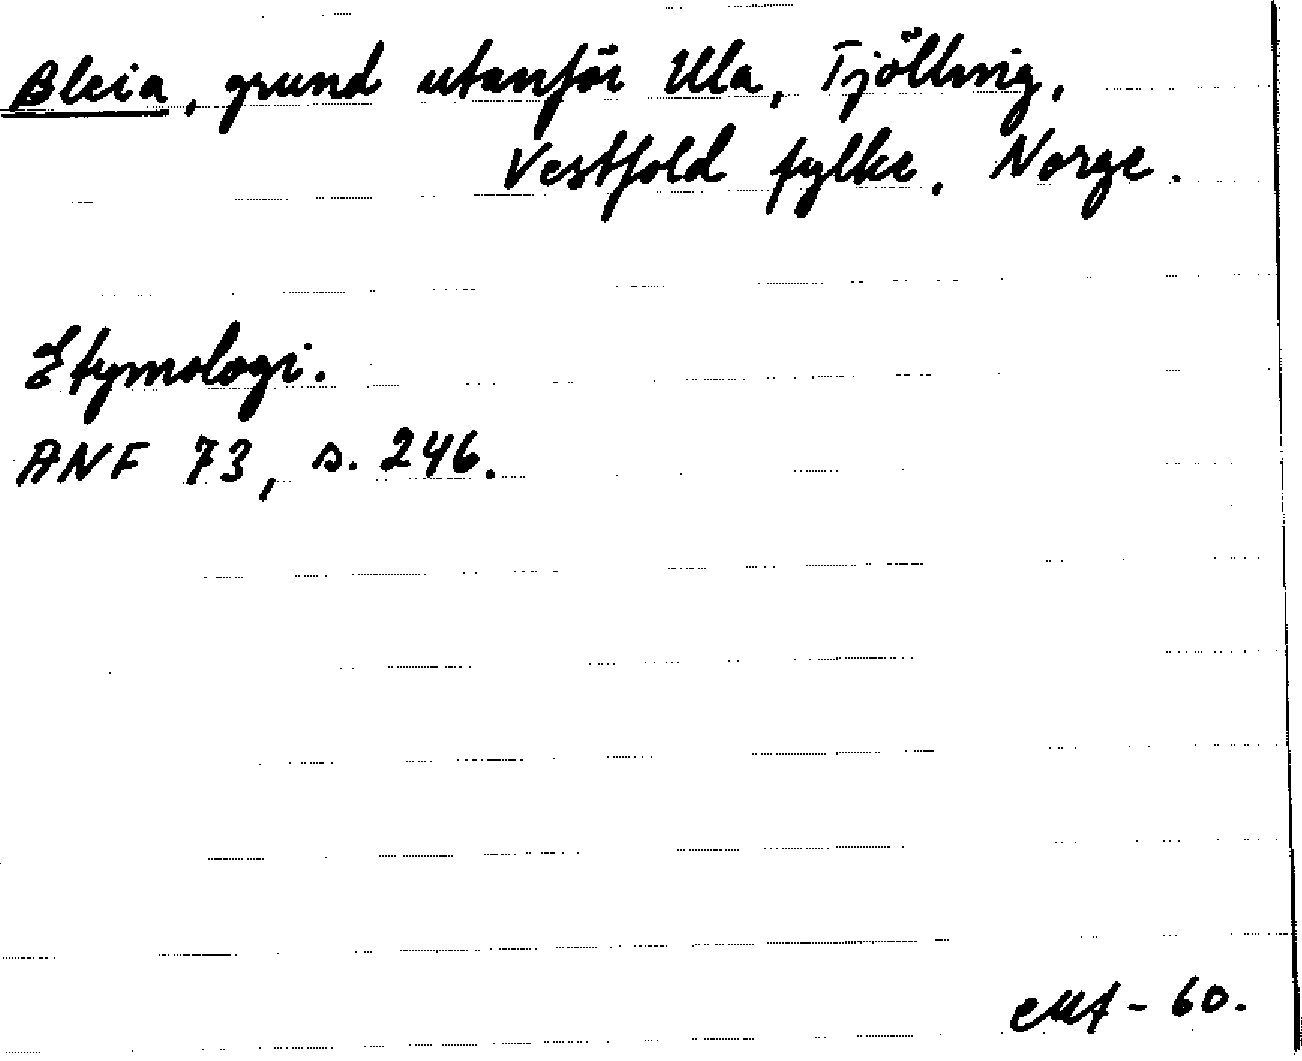 Bleia, grund utanför Ula, Tjölling,
Vestfold fylke. Norge.
Etymologi.
ANF 73, s. 246.
- 60.